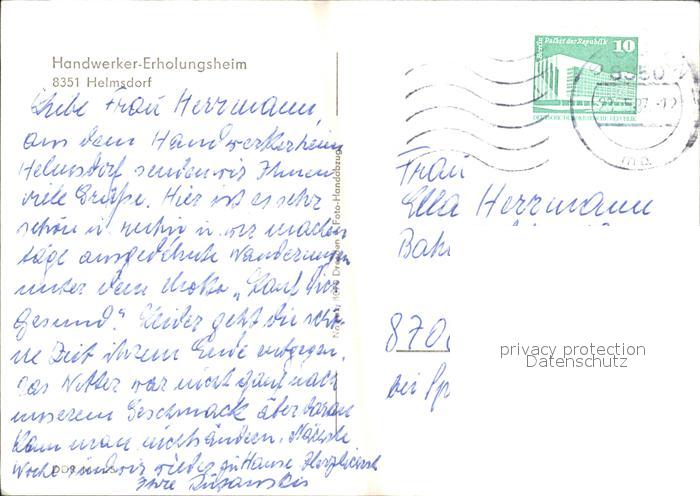 Handwerker-Erholungsheim
8351 Helmsdorf
Liebe Frau Herrmann,
aus dem Handwerkerheim
Helmsdorf senden wir Ihnen
viele Grüße. Hier ist es sehr
schön u. ruhig u. wir machen
tägl. ausgedehnte Wanderungen
unter dem Motto „Lauf dich
gesund". Leider geht die schö-
ne Zeit ihrem Ende entgegen.
Das Wetter war nicht ganz nach
unserem Geschmack aber daran
kann man nichts ändern. Nächste
Woche sind wir wieder zu Hause. Herzlichst
Ihre
Foto-Handabzug
Berlin Palast der Republik 10
DEUTSCHE DEMOKRATISCHE REPUBLIK
8350
Frau
Ella Herrmann
Bah
870
bei
privacy protection
Datenschutz